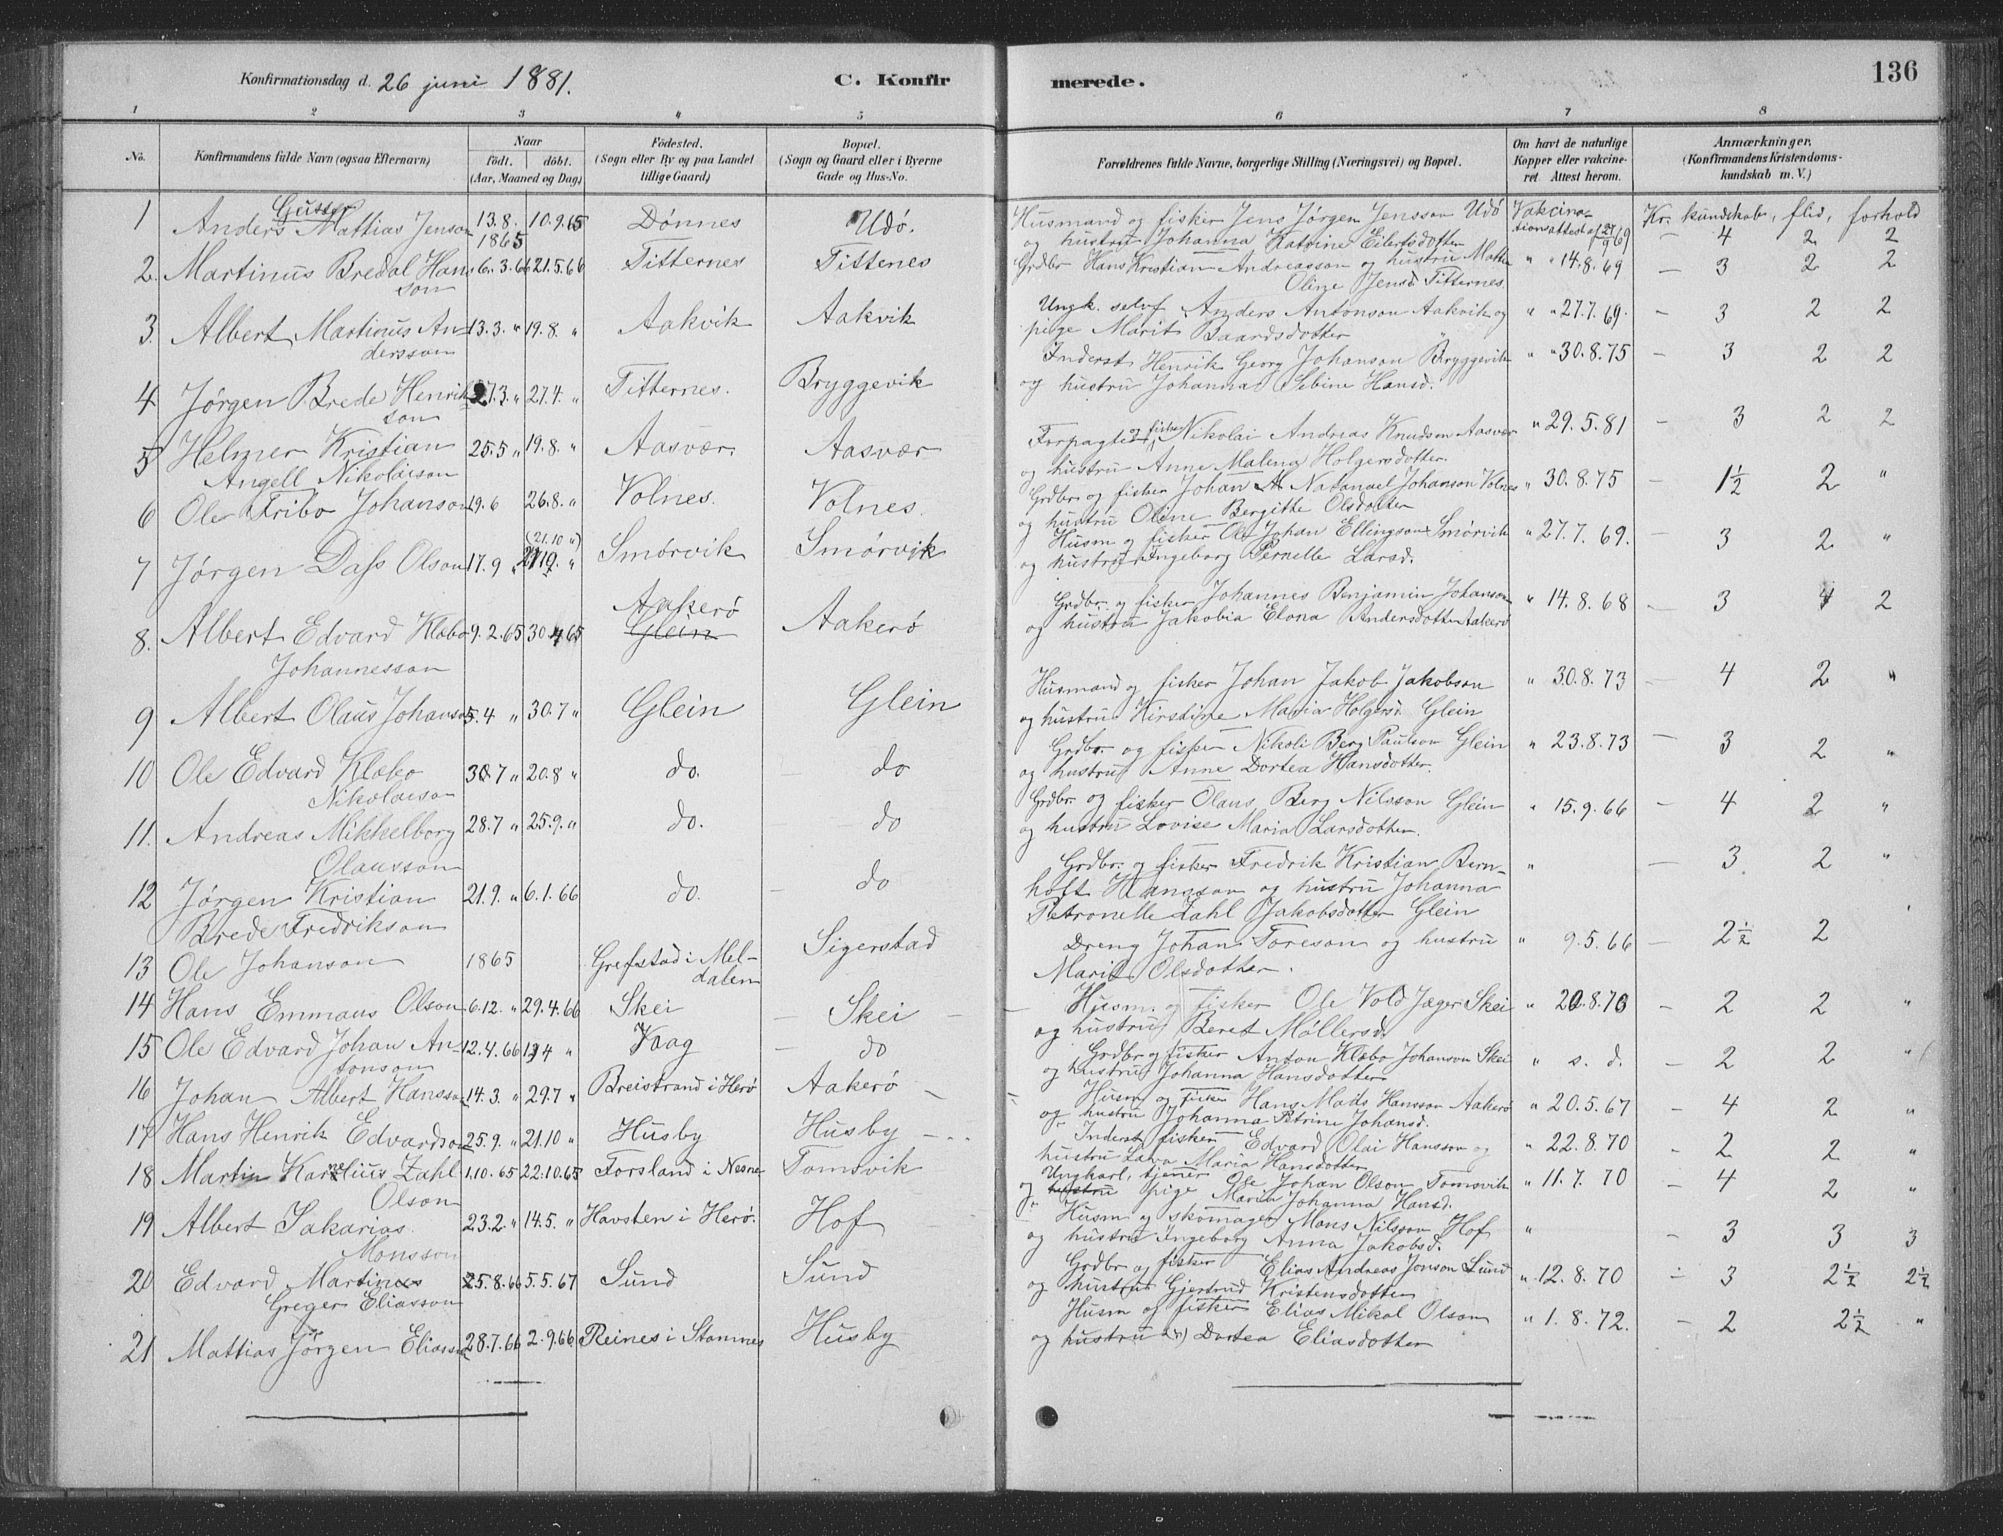 Konfirmationsdag d. 26 juni 1881.
C. Konfir
merede.
136
1 2 3 4 5 6 7 8
No. Konfirmandens fulde Navn (ogsaa Efternavn) Naar født. døbt. (Aar, Maaned og Dag) Fødested. (Sogn eller By og paa Landet tillige Gaard) Bopæl. (Sogn og Gaard eller i Byerne Gade og Hus-No. Forældrenes fulde Navne, borgerlige Stilling (Næringsvei) og Bopæl. Om havt de naturlige Kopper eller vakcineret Attest herom. Anmærkninger. (Konfirmandens Kristendomskundskab m. V.)
Gutter
1 Anders Mattias Jenson 13.8. 1865 10.9.65 Dønnes Udø. Husmand og fisker Jens Jørgen Jensson Udø Vakcina- Kr. kundskab, flid, forhold
og hustru Johanna Katrine Eilertsdotter tionsattest af 27/9 69 – 4 2 2
2. Martinus Bredal Hans 6.3.66 21.5.66 Titternes Tittenes Grdbr Hans Kristian Andreasson og hustru Matta " " 14.8.69 – 3 2 2
son Oline Jensd. Titternes.
3. Albert Martinus An 13.3. " 19.8. " Aakvik Aakvik Ungk. selvf Anders Antonson Aakvik og " " 27.7.69. – 3 2 2
dersson pige Marit Baardsdotter
4 Jørgen Brede Henrik 27.3. " 27.4. " Titternes. Bryggevik Inderst Henrik Georg Johanson Bryggevik " " 30.8.75 – 3 2 2
son og hustru Johanna Sebine Hansd.
5 Helmer Kristian 25.5 " 19.8. " Aasvær. Aasvær Forpagter og fisker Nikolai Andreas Knudsen Aasvær " 29.5.81 – 3 2 2
Angell Nikolaison og hustru Anne Malena Holgersdotter.
6 Ole Fribo Johanson 19.6 26.8. " Volnes. Volnes. Grdbr. og fisker Johan Natanael Johanson Volnes " 30.8.75 – 1½ 2 "
og hustru Oline Bergitte Olsdotter
7 Jørgen Dass Olson 17.9 " (21.10 ") Smørvik Smørvik Husm og fisker Ole Johan Ellingson Smørvik " 27.7.69. – 3 2 "
og hustru Ingeborg Pernelle Larsd.
8. Albert Edvard Klæbo 9.2.65 30.4.65 Aakerø Glein Aakerø Grdbr. og fisker Johannes Benjamin Johanson " 14.8.68 – 3 4 2
Johannesson og hustru Jakobia Elona Andersdotter Aakerø
9 Albert Olaus Johanson 5.4 " 30.7 " Glein Glein Husmand og fisker Johan Jakob Jakobson " 30.8.73 – 4 2 "
og hustru Kirstine Maria Holgersd. Glein
10 Ole Edvard Klæbo 30.7 " 20.8 " do. – do Grdbr. og fisker Nikoli Berg Paulson Glein " 23.8.73 – 3 2 "
Nikolaison og hustru Anne Dortea Hansdotter.
11. Andreas Mikkelborg 28.7 " 25.9. " do. do Grdbr. og fisker Olaus Berg Nilsson Glein " 15.9.66 – 4 2 "
Olausson og hustru Lovise Maria Larsdotter.
12 Jørgen Kristian 21.9. " 6.1.66 do. – do Grdbr. og fisker Fredrik Kristian Bern- " – 3. 2 "
Brede Fredrikson hoft Hansson og hustru Johanna
Petronelle Zahl Jakobsdotter Glein
13 Ole Johanson 1865 Grefstad i Mel- Sigerstad Dreng Johan Toreson og hustru " 9.5.66 – 2½ 2
dalen Marit Olsdotter.
14 Hans Emmaus Olson 6.12. " 29.4.66 Skei – Skei – Husm. og fisker Ole Vold Jæger Skei " 20.8.70 – 2 2 "
og hustru Beret Møllersd.
15 Ole Edvard Johan An- 12.4.66 Vaag – do Grdbr og fisker Anton Klæbo Johanson Skei " s. d. – 2 2 "
tonson og hustru Johanna Hansdotter
16 Johan Albert Hansson 14.3. " 29.7 " Breistrand i Herø Aakerø – Husm og fisker Hans Mats Hansson Aakerø " 20.5.67 – 4 2 "
og hustru Johanna Petrine Johansd.
17 Hans Henrik Edvardson 25.9. " 21.10 " Husby Husby – Inderst fisker Edvard Olai Hansson og " 22.8.70 – 2 2 "
hustru Lava Maria Hansdotter
18 Martin Karelius Zahl 1.10.65 22.10.65 Forsland i Nesne Tomsvik Ungkarl, tjener Ole Johan Olson Tomsvik " 11.7.70 – 4 2 "
Olson og hustru pige Maria Johanna Hansd.
19 Albert Sakarias 23.2. " 14.5. " Havsten i Herø. Hof Husm og skomager Mons Nilsson Hof " – 3 3 3
Monsson og hustru Ingeborg Anna Jakobsd.
20 Edvard Martines 25.8.66 5.5.67 Sund Sund Grdbr og fisker Elias Andreas Jonson Sund " 12.8.70 – 3 2½ 2½
Greger Eliasson og hustru Gjertrud Kristensdotter
21 Mattias Jørgen Eliasson 28.7.66 2.9.66 Reines i Stamnes Husby Husm og fisker Elias Mikal Olson " 1.8.72. – 2 2½ "
og hustru Dortea Eliasdotter